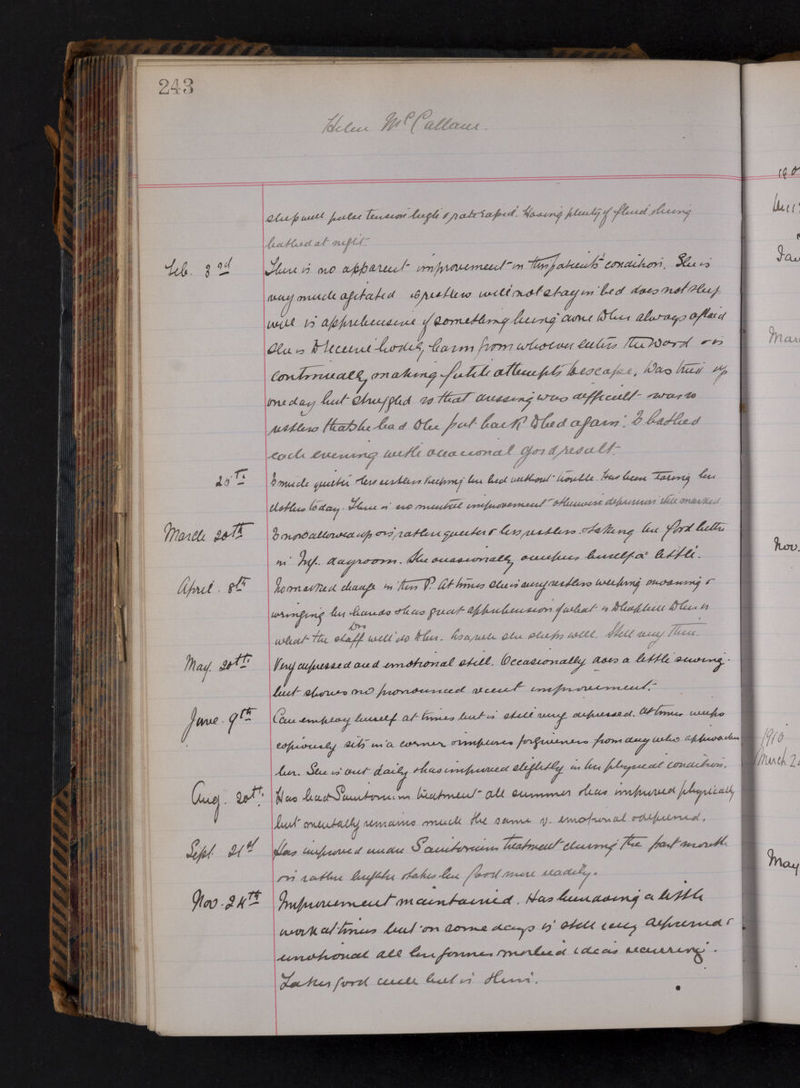 243
Helen McCallam.
sleep well pulse tension high & rate rapid. Having plenty of fluid & being
bathed at night.
Feb. 3rd There is no apparent improvement in this patient's condition. She is
very much agitated & restless will not stay in bed does not sleep
well is apprehensive of something being done to her always afraid
she is to receive bodily harm from whoever enters the ward & is
continually making futile attempts to escape. Was tried up
one day but struggled so that dressing was difficult & was so
restless that she had to be put back to bed again. Is bathed
each evening with occasional good result.
20th Is much quieter & less restless keeping her bed without trouble. Has been her
clothes today. There is no mental improvement otherwise depression still marked
March 20th Is now allowed up & is rather quieter & less restless & taking her food better
in Inf. dayroom. She occasionally occupies herself a little.
April 8th No marked change in this Pt. At times she is very restless weeping moaning &
wringing her hands & has great apprehension of what is to happen to her &
what the staff will do to her. sleeps well. Still very thin.
May 20th Very depressed and emotional still. Occasionally does a little sewing.
but shows no pronounced recent improvement.
June 9th Can employ herself at times but is still very depressed. At times weeps
copiously sits in a corner & implores forgiveness from any who approaches
her. She is out daily & has improved slightly in her physical condition.
Aug. 20th Has had Sanitorium treatment all summer & has improved physically
but mentally remains much the same v. emotional & depressed.
Sept. 21st Has improved under Sanitorium treatment during the past month
& is rather brighter & takes her food more readily.
Nov. 24th Improvement maintained. Has been doing a little
work at times but on some days is still very depressed &
emotional all her former morbid ideas recurring.
Takes food well but is thin.
Nov.
1910
March 2
May